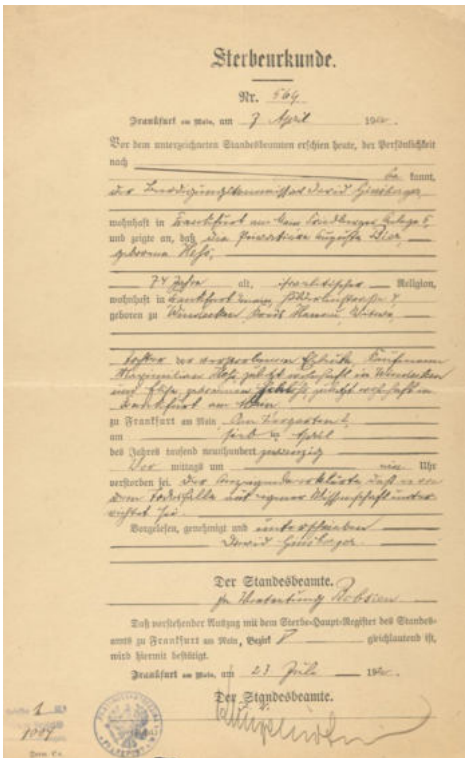 Sterbeurkunde.
Nr. 564.
Frankfurt am Main, am 7 April 1920.
Vor dem unterzeichneten Standesbeamten erschien heute, der Persönlichkeit
nach
be kannt,
der Beerdigungskommissar David
wohnhaft in Frankfurt am Main Friedberger Anlage 5,
und zeigte an, daß die Privatiere Auguste
geborene Heß,
74 Jahre alt, israelitischer Religion,
wohnhaft in Frankfurt Main,
geboren zu Windecken, Kreis Hanau, Witwe,
Tochter der verstorbenen Eheleute, Kaufmann
Heß, zuletzt wohnhaft in Windecken
und geborenen zuletzt wohnhaft in
Frankfurt am Main
zu Frankfurt am Main, Am Tiergarten
am April
des Jahres tausend neunhundert zwanzig
Vor mittags um Uhr
verstorben sei. Der Anzeigende erklärte, daß er von
dem Todesfalle aus eigener Wissenschaft unter
richtet sei.
Vorgelesen, genehmigt und unterschrieben
David
Der Standesbeamte.
In Vertretung
Daß vorstehender Auszug mit dem Sterbe-Haupt-Register des Standes-
amts zu Frankfurt am Main, Bezirk gleichlautend ist,
wird hiermit bestätigt.
Frankfurt am Main, am 23 Juli 1920.
Der Standesbeamte.